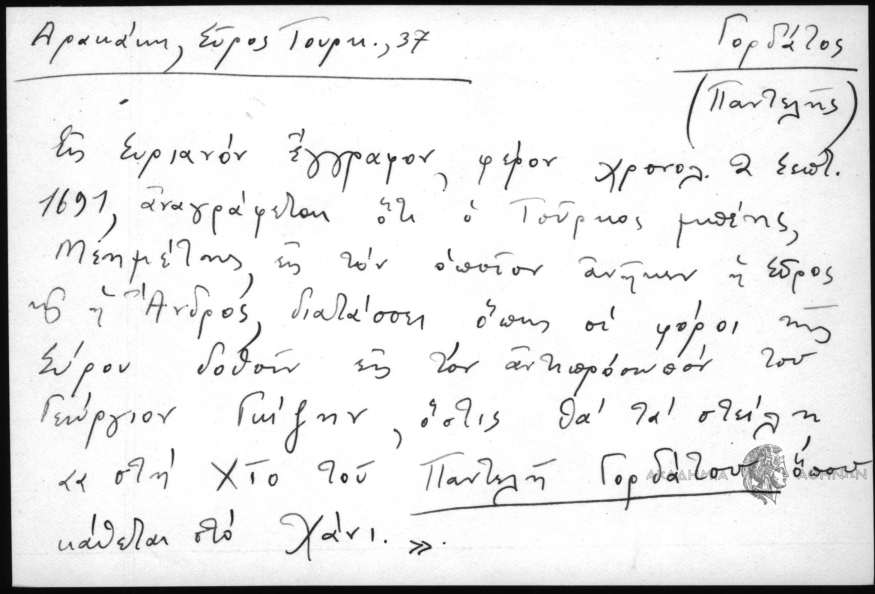 Δρακάκη, Σῦρος Τουρκ., 37
Γορδᾶτος
(Παντελῆς)
Εἰς Συριανόν ἔγγραφον, φέρον χρονολ. 2 Σεπτ.
1691, ἀναγράφεται ὅτι ὁ Τοῦρκος μπέης,
Μεημέτης, εἰς τόν ὁποῖον ἀνῆκεν ἡ Σῦρος
καί ἡ Ἄνδρος, διατάσσει ὅπως οἱ φόροι τῆς
Σύρου δοθοῦν εἰς τόν ἀντιπρόσωπόν του
Γεώργιον Γκίζην, ὅστις θά τά στείλη
«στή Χῖο τοῦ Παντελῆ Γορδάτου ὅπου
κάθεται στό Χάνι.»
ΑΚΑΔΗΜΙΑ ΑΘΗΝΩΝ